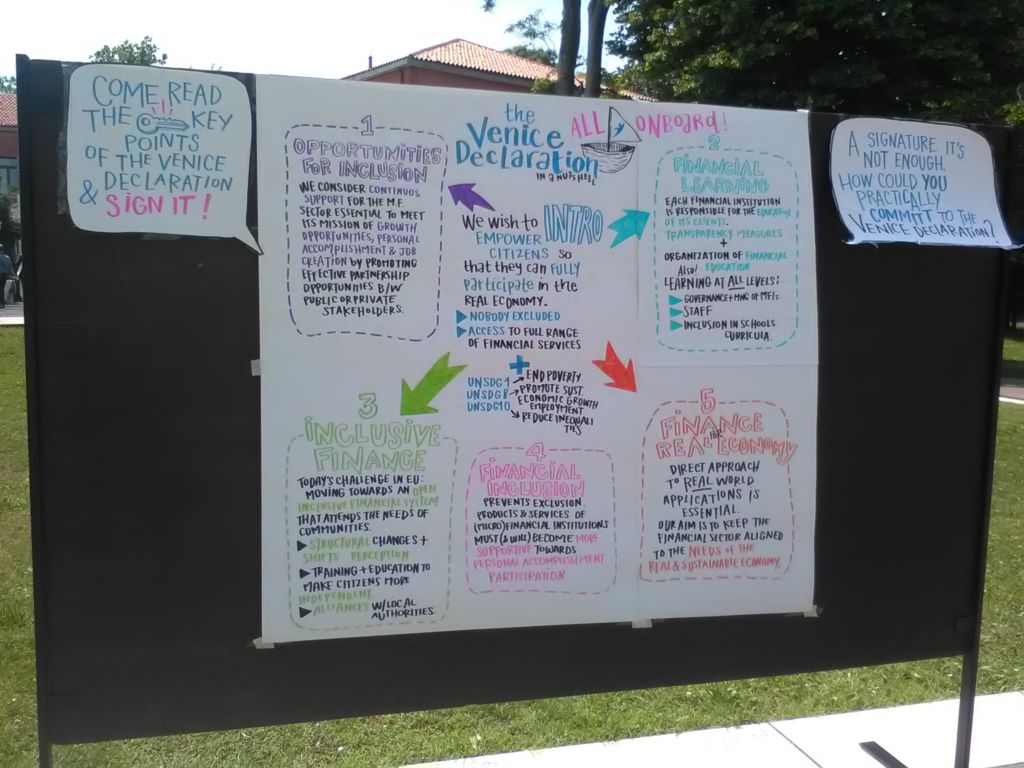 COME READ
THE KEY
POINTS
OF THE VENICE
DECLARATION
& SIGN IT!
the
Venice
Declaration
IN A NUTSHELL
ALL ONBOARD!
A SIGNATURE IT'S
NOT ENOUGH.
HOW COULD YOU
PRACTICALLY
COMMIT TO THE
VENICE DECLARATION?
INTRO
We wish to
EMPOWER
CITIZENS so
that they can FULLY
participate in the
REAL ECONOMY.
NOBODY EXCLUDED
ACCESS TO FULL RANGE
OF FINANCIAL SERVICES
+
UNSDG1 END POVERTY
UNSDG8 PROMOTE SUST.
ECONOMIC GROWTH
EMPLOYMENT
UNSDG10 REDUCE INEQUALI
TIES
1
OPPORTUNITIES
FOR INCLUSION
WE CONSIDER CONTINUOS
SUPPORT FOR THE M.F.
SECTOR ESSENTIAL TO MEET
ITS MISSION OF GROWTH
OPPORTUNITIES, PERSONAL
ACCOMPLISHMENT & JOB
CREATION BY PROMOTING
EFFECTIVE PARTNERSHIP
OPPORTUNITIES B/W
PUBLIC OR PRIVATE
STAKEHOLDERS.
2
FINANCIAL
LEARNING
EACH FINANCIAL INSTITUTION
IS RESPONSIBLE FOR THE EDUCATION
OF ITS CLIENTS.
TRANSPARENCY MEASURES
+
ORGANIZATION OF FINANCIAL
Also! EDUCATION
LEARNING AT ALL LEVELS:
GOVERNANCE + MNG OF MFIs
STAFF
INCLUSION IN SCHOOLS
CURRICULA.
3
INCLUSIVE
FINANCE
TODAY'S CHALLENGE IN EU:
MOVING TOWARDS AN OPEN
INCLUSIVE FINANCIAL SYSTEM
THAT ATTENDS THE NEEDS OF
COMMUNITIES.
STRUCTURAL CHANGES +
SHIFTS PERCEPTION
TRAINING + EDUCATION TO
MAKE CITIZENS MORE
INDEPENDENT.
ALLIANCES W/LOCAL
AUTHORITIES.
4
FINANCIAL
INCLUSION
PREVENTS EXCLUSION.
PRODUCTS & SERVICES OF
(MICRO)FINANCIAL INSTITUTIONS
MUST (& WILL) BECOME MORE
SUPPORTIVE TOWARDS
PERSONAL ACCOMPLISHMENT
PARTICIPATION
5
FINANCE
FOR
REAL ECONOMY
DIRECT APPROACH
TO REAL WORLD
APPLICATIONS IS
ESSENTIAL.
OUR AIM IS TO KEEP THE
FINANCIAL SECTOR ALIGNED
TO THE NEEDS OF THE
REAL & SUSTAINABLE ECONOMY.